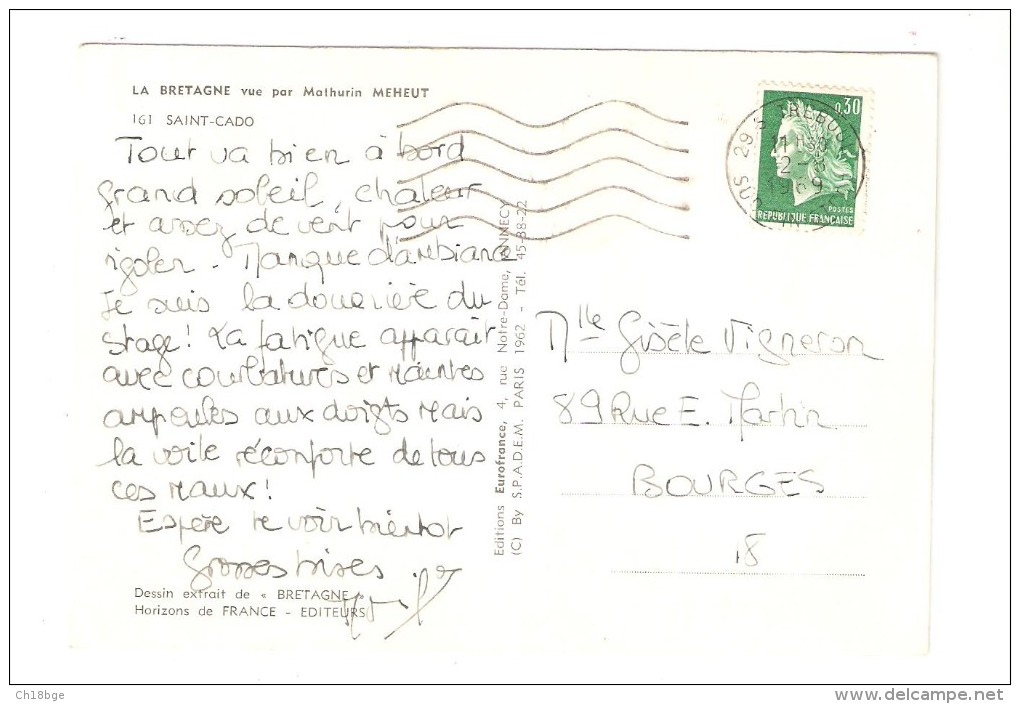 LA BRETAGNE vue par Mathurin MEHEUT
161 SAINT-CADO
Tout va bien à bord
grand soleil, chaleur
et assez de vent pour
rigoler - Manque d'ambiance
Je suis la douairière du
stage! La fatigue apparaît
avec courbatures et maintes
ampoules aux doigts mais
la voile réconforte de tous
ces maux!
Espère te voir bientôt
Grosses bises
Dessin extrait de « BRETAGNE »
Horizons de FRANCE - EDITEURS
Editions Eurofrance, 4, rue Notre-Dame, ANNECY
(C) By S.P.A.D.E.M. PARIS 1962 - Tél. 45-88-22
0,30
POSTES
REPUBLIQUE FRANÇAISE
29 S TREBOUL
11 H 30
2-8
1969
Mlle Gisèle Vigneron
89 Rue E. Martin
BOURGES
18
Ch18bge
www.delcampe.net